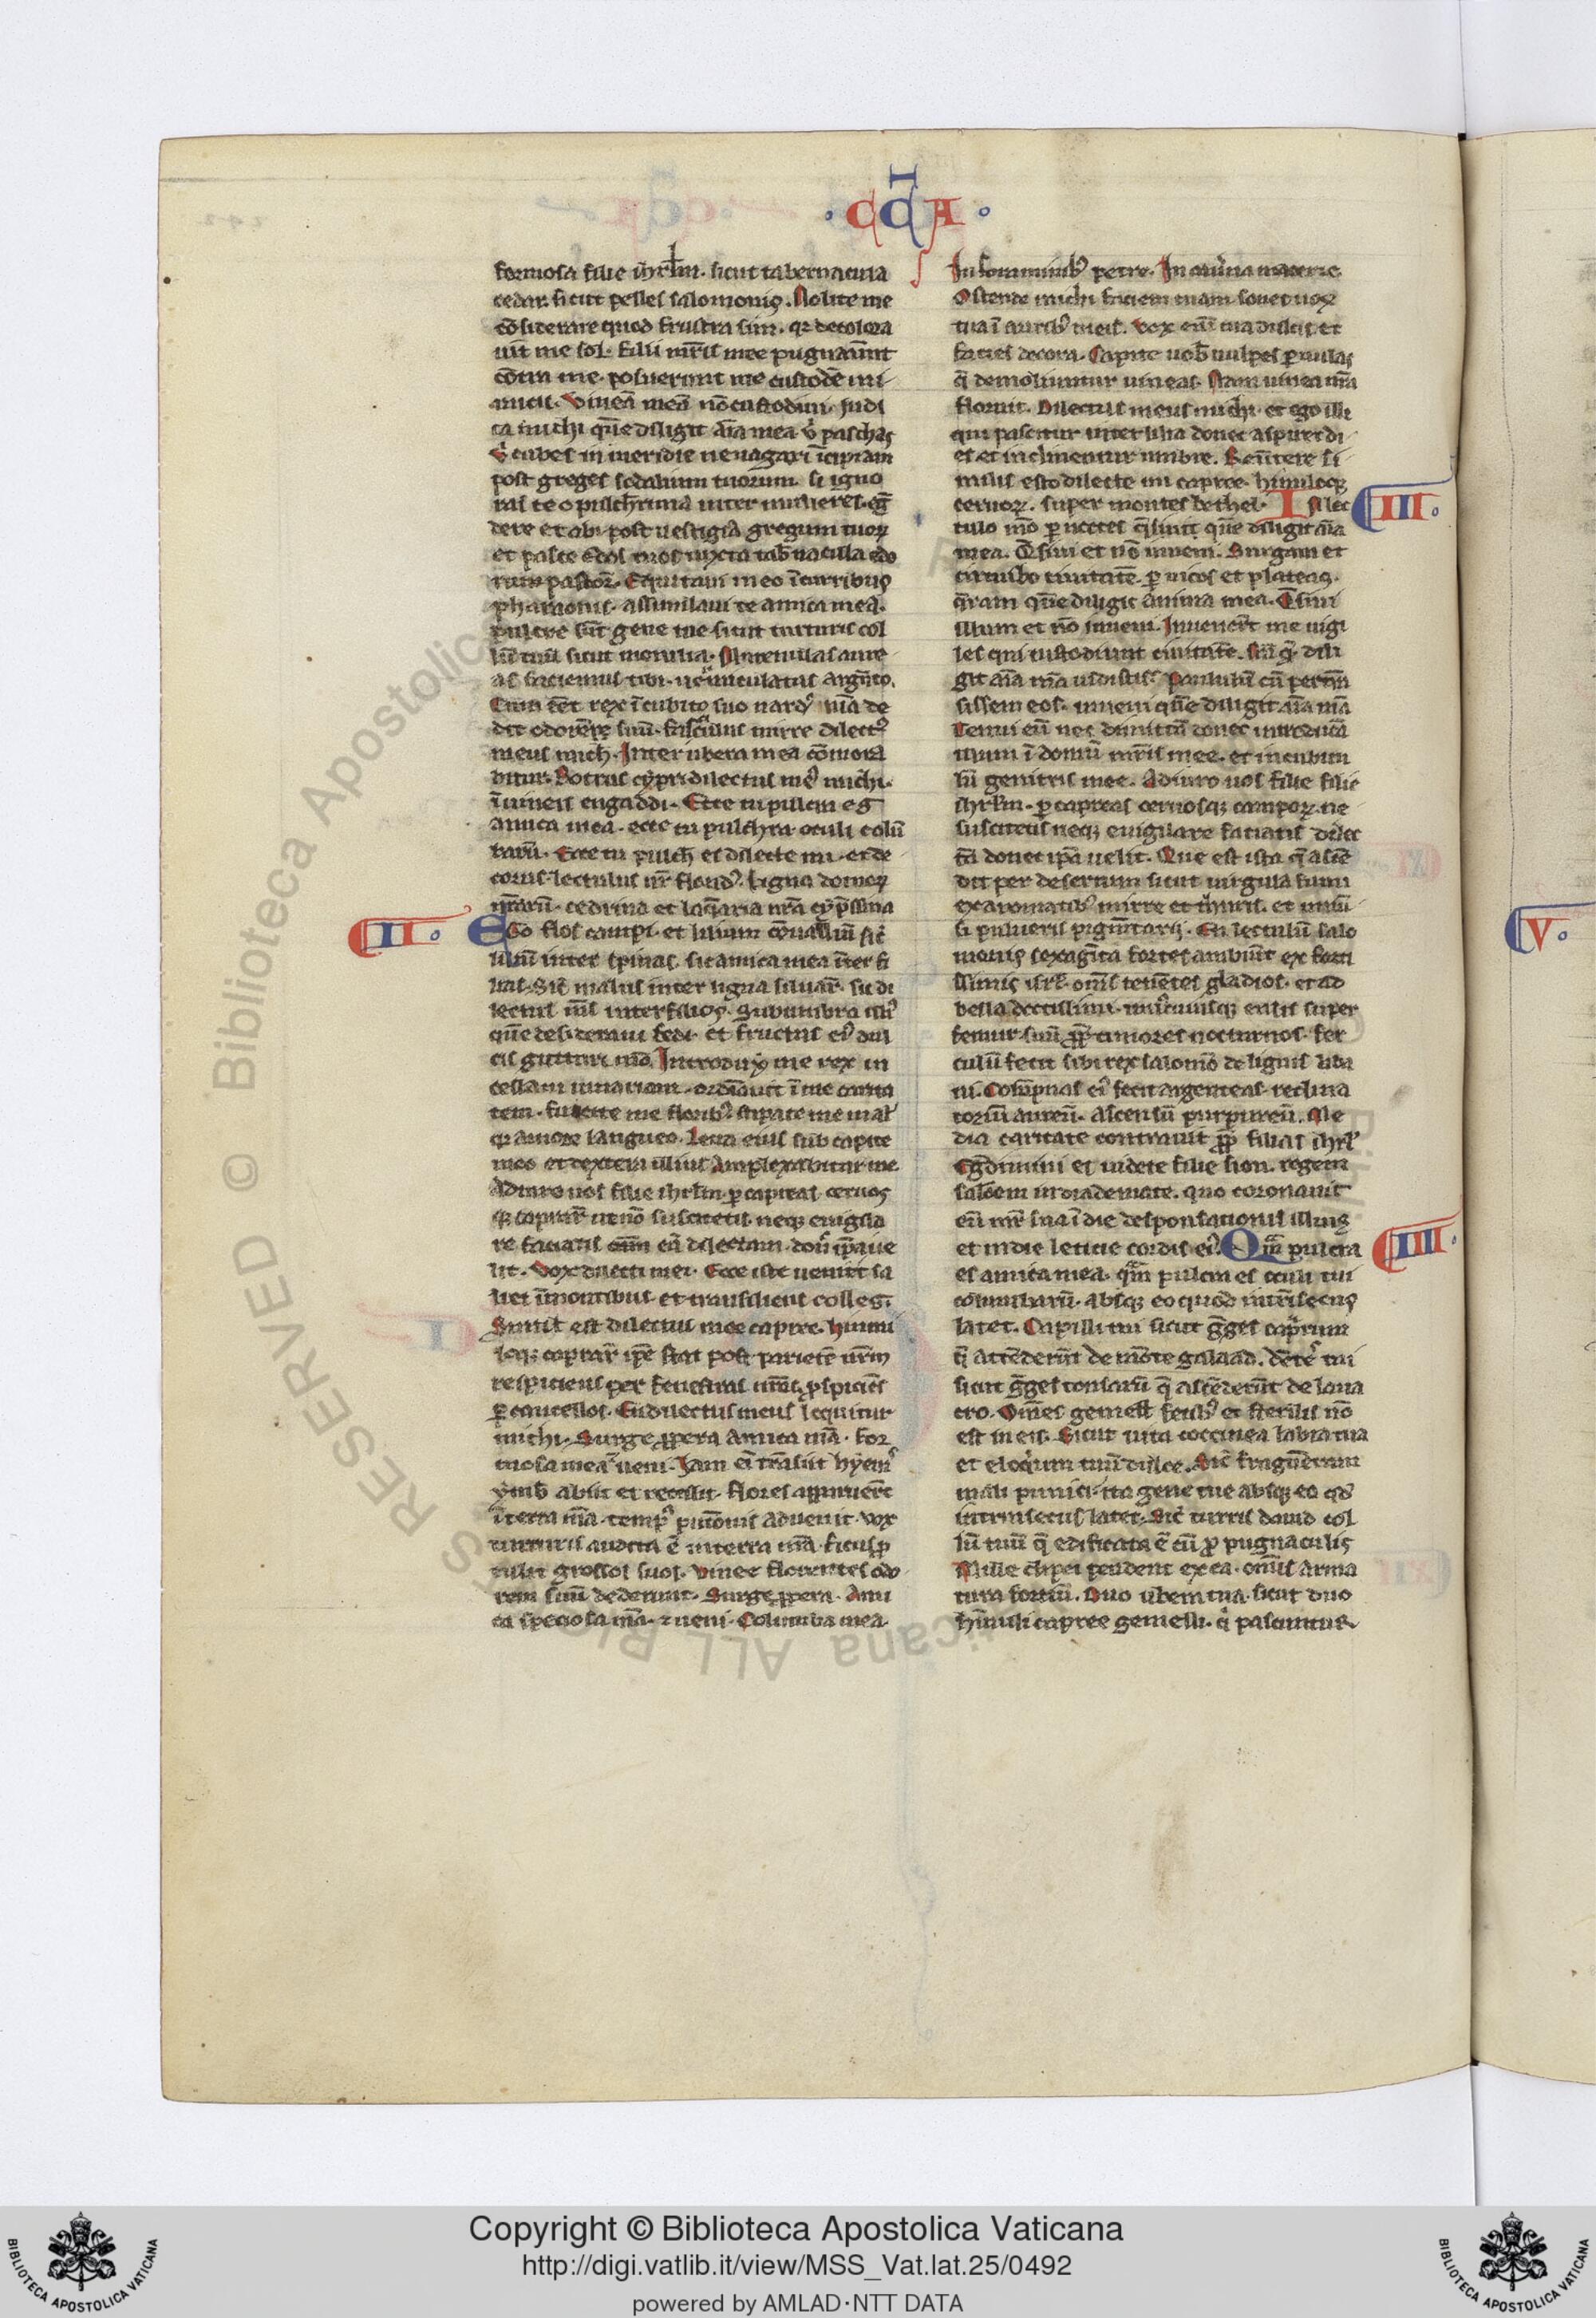 · CĀ̄A ·
formosa filie ih̅rl̅m. sicut tabernacula
cedar. sicut pelles salomonis. Nolite me
co̅siderare quod fusca sim. qz decolora
uit me sol. filii mr̅is mee pugnauer̅t
co̅tra me. posuerunt me custode̅ in
uineis. Vinea̅ mea̅ no̅ custodiui. Indi
ca michi que̅ diligit ai̅a mea. u᷎ paschas
u᷎ cubes in meridie ne uagari i̅cipiam
post greges sodalium tuorum. si igno
ras te o pulcherrima inter mulieres. eg̅
dere et abi post uestigia gregum tuoꝝ
et pasce edos tuos iuxta tab̅nacula
pastoꝝ. Equitatui meo i̅ curribus
pharaonis. assimilaui te amica mea.
pulcre su̅t gene tue sicut turturis col
lu̅ tuu̅ sicut monilia. Murenulas aure
as faciemus tibi. u̅miculatas arge̅to.
Cum e̅et rex i̅ cubitu suo nardꝰ m̅a de
dit odore̅ suu̅. fasciculus mirre dilectꝰ
meus mich. Inter ubera mea co̅mora
bitur. Botrus cypri dilectus mꝰ michi.
i̅ uineis engaddi. Ecce tu pulcra es
amica mea. ecce tu pulchra. oculi colu̅
baru̅. Ecce tu pulch̅ es dilecte mi. et de
corus. lectulus nr̅ floridꝰ. ligna domoꝝ
nr̅aru̅. cedrina et laq̅aria nr̅a cyp̅ssina
II. Ego flos campi. et lilium co̅ualliu̅ sic̅
liliu̅ inter spinas. sic amica mea i̅ter fi
lias. Sic̅ malus inter ligna siluar̅. sic di
lectus m̅s inter filios. Sub umbra illiꝰ
que̅ desideraui sedi. et fructus eiꝰ dul
cis gutturi m̅o. Introduxit me rex in
cellam uinariam. ordi̅auit i̅ me carita
tem. fulcite me floribꝰ. stipate me malꝰ
qz amore langueo. Leua eius sub capite
meo et dextera illius amplexabitur me.
Adiuro uos filie ih̅rl̅m. p̲ capreas. ceruos
qꝫ ut no̅ suscitetis. neqꝫ euigila
re faciatis dilectam. donꝭ ip̅a ue
lit. Vox dilecti mei. Ecce iste uenit sa
liens i̅ montibus. et transiliens colles.
Similis est dilectus meus capree. hinnu
loqꝫ ip̅e stat post pariete̅ nr̅m
respiciens per fenestras p̲spicie̅s
p̲ cancellos. En dilectus meus loquitur
michi. Surge p̲pera amica m̅a. for
mosa mea ueni. Iam ei̅ tra̅siit hyemꝰ
ymb̅ abiit et recessit. flores apparuer̅t
i̅ terra m̅a. tempꝰ adueuit. vox
turturis audita e̅ in terra m̅a. ficus p̲
tulit grossos suos. Vinee florentes odo
rem suu̅ dederunt. Surge p̲pera. Ami
ca speciosa m̅a. ⁊ ueni. Columba mea
In foraminibꝰ petre. In cau̅na macerie
Ostende michi faciem tuam sonet uox
tua i̅ auribꝰ meis. Vox eni̅ tua dulcis et
facies decora. Capite nob̅ uulpes p̲uulas
q̅ demoliuntur uineas. Nam uinea nr̅a
floruit. Dilectus meus michi. et ego illi
qui pascitur inter lilia donec aspiret di
es et inclinentur umbre. Reu̅tere si
milis esto dilecte mi capree. hinnuloqꝫ
ceruoꝝ. super montes bethel. In lec III.
tulo m̅o p̲ noctes q̅siui que̅ diligit ai̅a
mea. Q̅siui et no̅ inueni. Surgam et
circuibo ciuitate̅ p̲ uicos et plateas.
q̅ram que̅ diligit anima mea. Q̅siui
illum et no̅ inueni. Inuener̅t me uigi
les qui custodiunt ciuitate̅. Nu̅ q̅ dili
git ai̅a m̅a uidistis. Paululu̅ cu̅ p̲tra̅
sissem eos. inueni que̅ diligit ai̅a m̅a
Tenui eu̅ nec dimitta̅ donec introduca̅
illum i̅ domu̅ mr̅is mee. et in cubicu
lu̅ genitricis mee. Adiuro uos filie
ih̅rl̅m. p̲ capreas ceruosqꝫ campoꝝ. ne
suscitetis neqꝫ euigilare faciatis dilec
ta̅ donec ip̅a uelit. Que est ista q̅ asce̅
dit per desertum sicut uirgula fumi
ex aromatibꝰ mirre et thuris. et uniu̅
si pulueris pigme̅tarii. En lectulu̅ salo
monis sexagi̅ta fortes ambiu̅t ex forti
ssimis isr̅l. om̅s tene̅tes gladios. et ad
bella doctissimi. uniꝰcuiusqꝫ ensis super
femur suu̅ p̲p̲ timores nocturnos. fer
culu̅ fecit sibi rex salomo̅ de lignis liba
ni. Colu̅pnas eiꝰ fecit argenteas. reclina
toriu̅ aureu̅. Ascensu̅ purpureu̅. Me
dia caritate constrauit p̲p̲ filias ih̅rl̅
Eg̅dimini et uidete filie sion. regem
salo̅em in diademate. quo coronauit
eu̅ mr̅ sua i̅ die desponsationis illius
et in die leticie cordis eiꝰ. Qm̅ pulcra IIII.
es amica mea. qm̅ pulcra es oculi tui
columbaru̅. absqꝫ eo quod intri̅secus
latet. Capilli tui sicut g̅ges caprarum
q̅ asce̅deru̅t de mo̅te galaad. de̅tes tui
sicut g̅ges tonsaru̅ q̅ asce̅deru̅t de laua
cro. Om̅es gemell̅ fetibꝰ et sterilis no̅
est in eis. Sicut uita coccinea labia tua
et eloquium tuu̅ dulce. Sic̅ fragme̅tum
mali punici. ita gene tue absqꝫ eo qd̅
intrinsecus latet. Sic̅ turris dauid col
lu̅ tuu̅ q̅ edificata e̅ cu̅ p̲pugnaculis
Mille clipei pendent ex ea. om̅is arma
tura fortiu̅. Duo ubera tua. sicut duo
hi̅nuli capree gemelli. q̅ pascuntur
V.
© Biblioteca Apostolica Vaticana ALL RIGHTS RESERVED
Copyright © Biblioteca Apostolica Vaticana
http://digi.vatlib.it/view/MSS_Vat.lat.25/0492
powered by AMLAD·NTT DATA
BIBLIOTECA APOSTOLICA VATICANA
BIBLIOTECA APOSTOLICA VATICANA